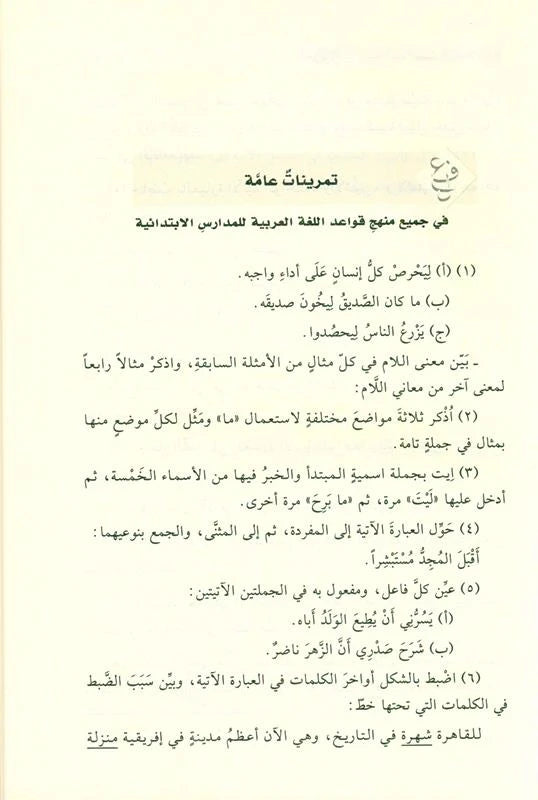 تمريناتٌ عامَّة
في جميع منهج قواعد اللغة العربية للمدارس الابتدائية
(١) (أ) لِيَحْرصْ كلُّ إنسانٍ عَلَى أداءِ واجبه.
(ب) ما كان الصَّديقُ لِيخُونَ صديقَه.
(ج) يَزْرعُ الناسُ لِيحصُدوا.
ـ بَيّن معنى اللام في كلّ مثالٍ من الأمثلة السابقةِ، واذكرْ مثالاً رابعاً
لمعنى آخر من معاني اللَّام:
(٢) اُذْكر ثلاثةَ مواضعَ مختلفةٍ لاستعمال «ما» ومَثِّل لكلِّ موضعٍ منها
بمثال في جملةٍ تامة.
(٣) إيت بجملة اسميةٍ المبتدأ والخبرُ فيها من الأسماء الخَمْسة، ثم
أدخل عليها «لَيْتَ» مرة، ثم «ما بَرِحَ» مرة أخرى.
(٤) حَوِّل العبارةَ الآتية إلى المفردة، ثم إلى المثنَّى، والجمع بنوعيهما:
أَقْبَلَ المُجِدُّ مُسْتَبْشِراً.
(٥) عيِّن كلَّ فاعل، ومفعول به في الجملتين الآتيتين:
(أ) يَسُرُّنِي أَنْ يُطِيعَ الوَلَدُ أَباه.
(ب) شَرَحَ صَدْرِي أَنَّ الزَّهرَ ناضرٌ.
(٦) اضْبط بالشكل أواخرَ الكلمات في العبارة الآتية، وبيِّن سَبَبَ الضَّبط
في الكلمات التي تحتها خطّ:
للقاهرة شهرة في التاريخ، وهي الآن أعظمُ مدينةٍ في إفريقية منزلة